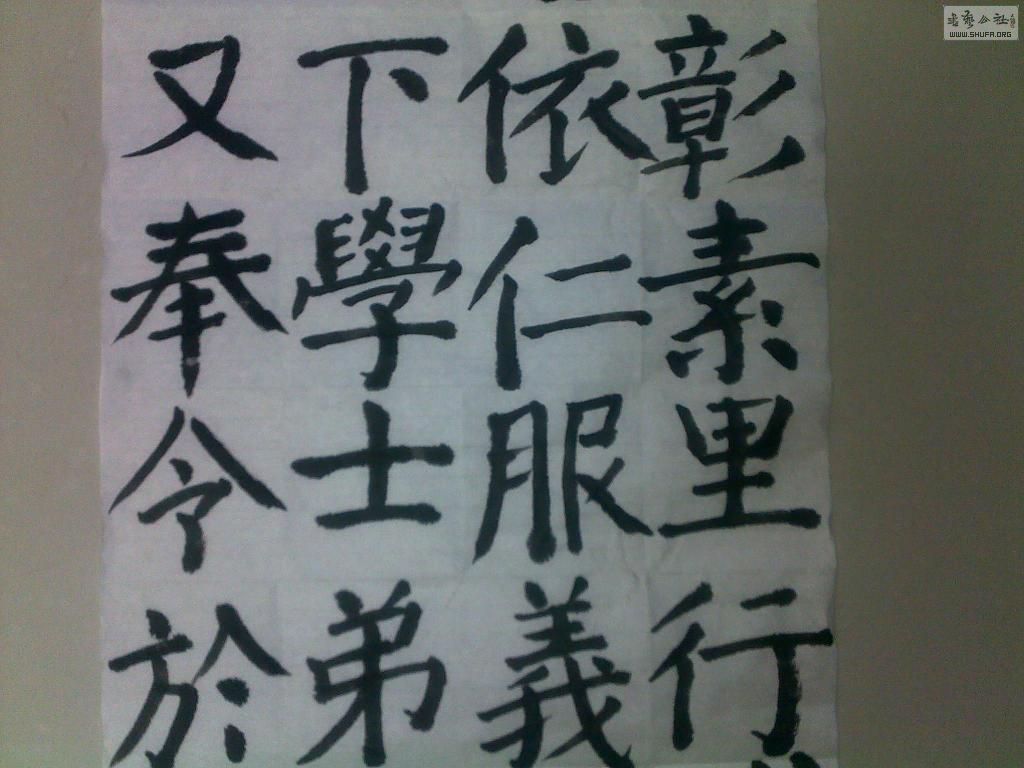 彰素里行
依仁服義
下學士弟
又奉令於
WWW.SHUFA.ORG